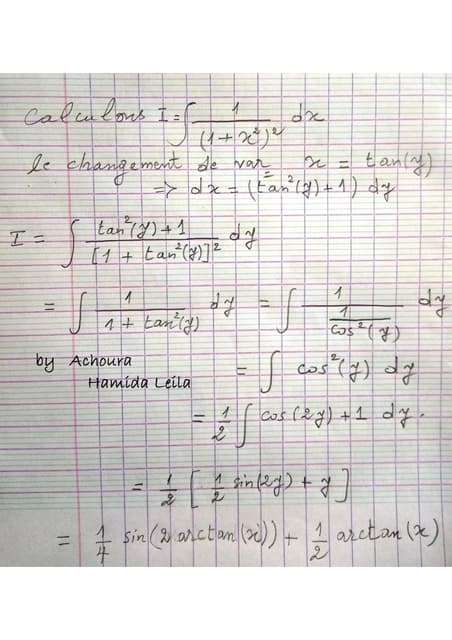 Calculons I = ∫ 1/(1+x²)² dx
le changement de var x = tan(y)
=> dx = (tan²(y)+1) dy
I = ∫ (tan²(y)+1)/[1 + tan²(y)]² dy
= ∫ 1/(1 + tan²(y)) dy = ∫ 1/(1/cos²(y)) dy
by Achoura
Hamida Leila
= ∫ cos²(y) dy
= 1/2 ∫ cos(2y) + 1 dy.
= 1/2 [1/2 sin(2y) + y]
= 1/4 sin(2 arctan(x)) + 1/2 arctan(x)